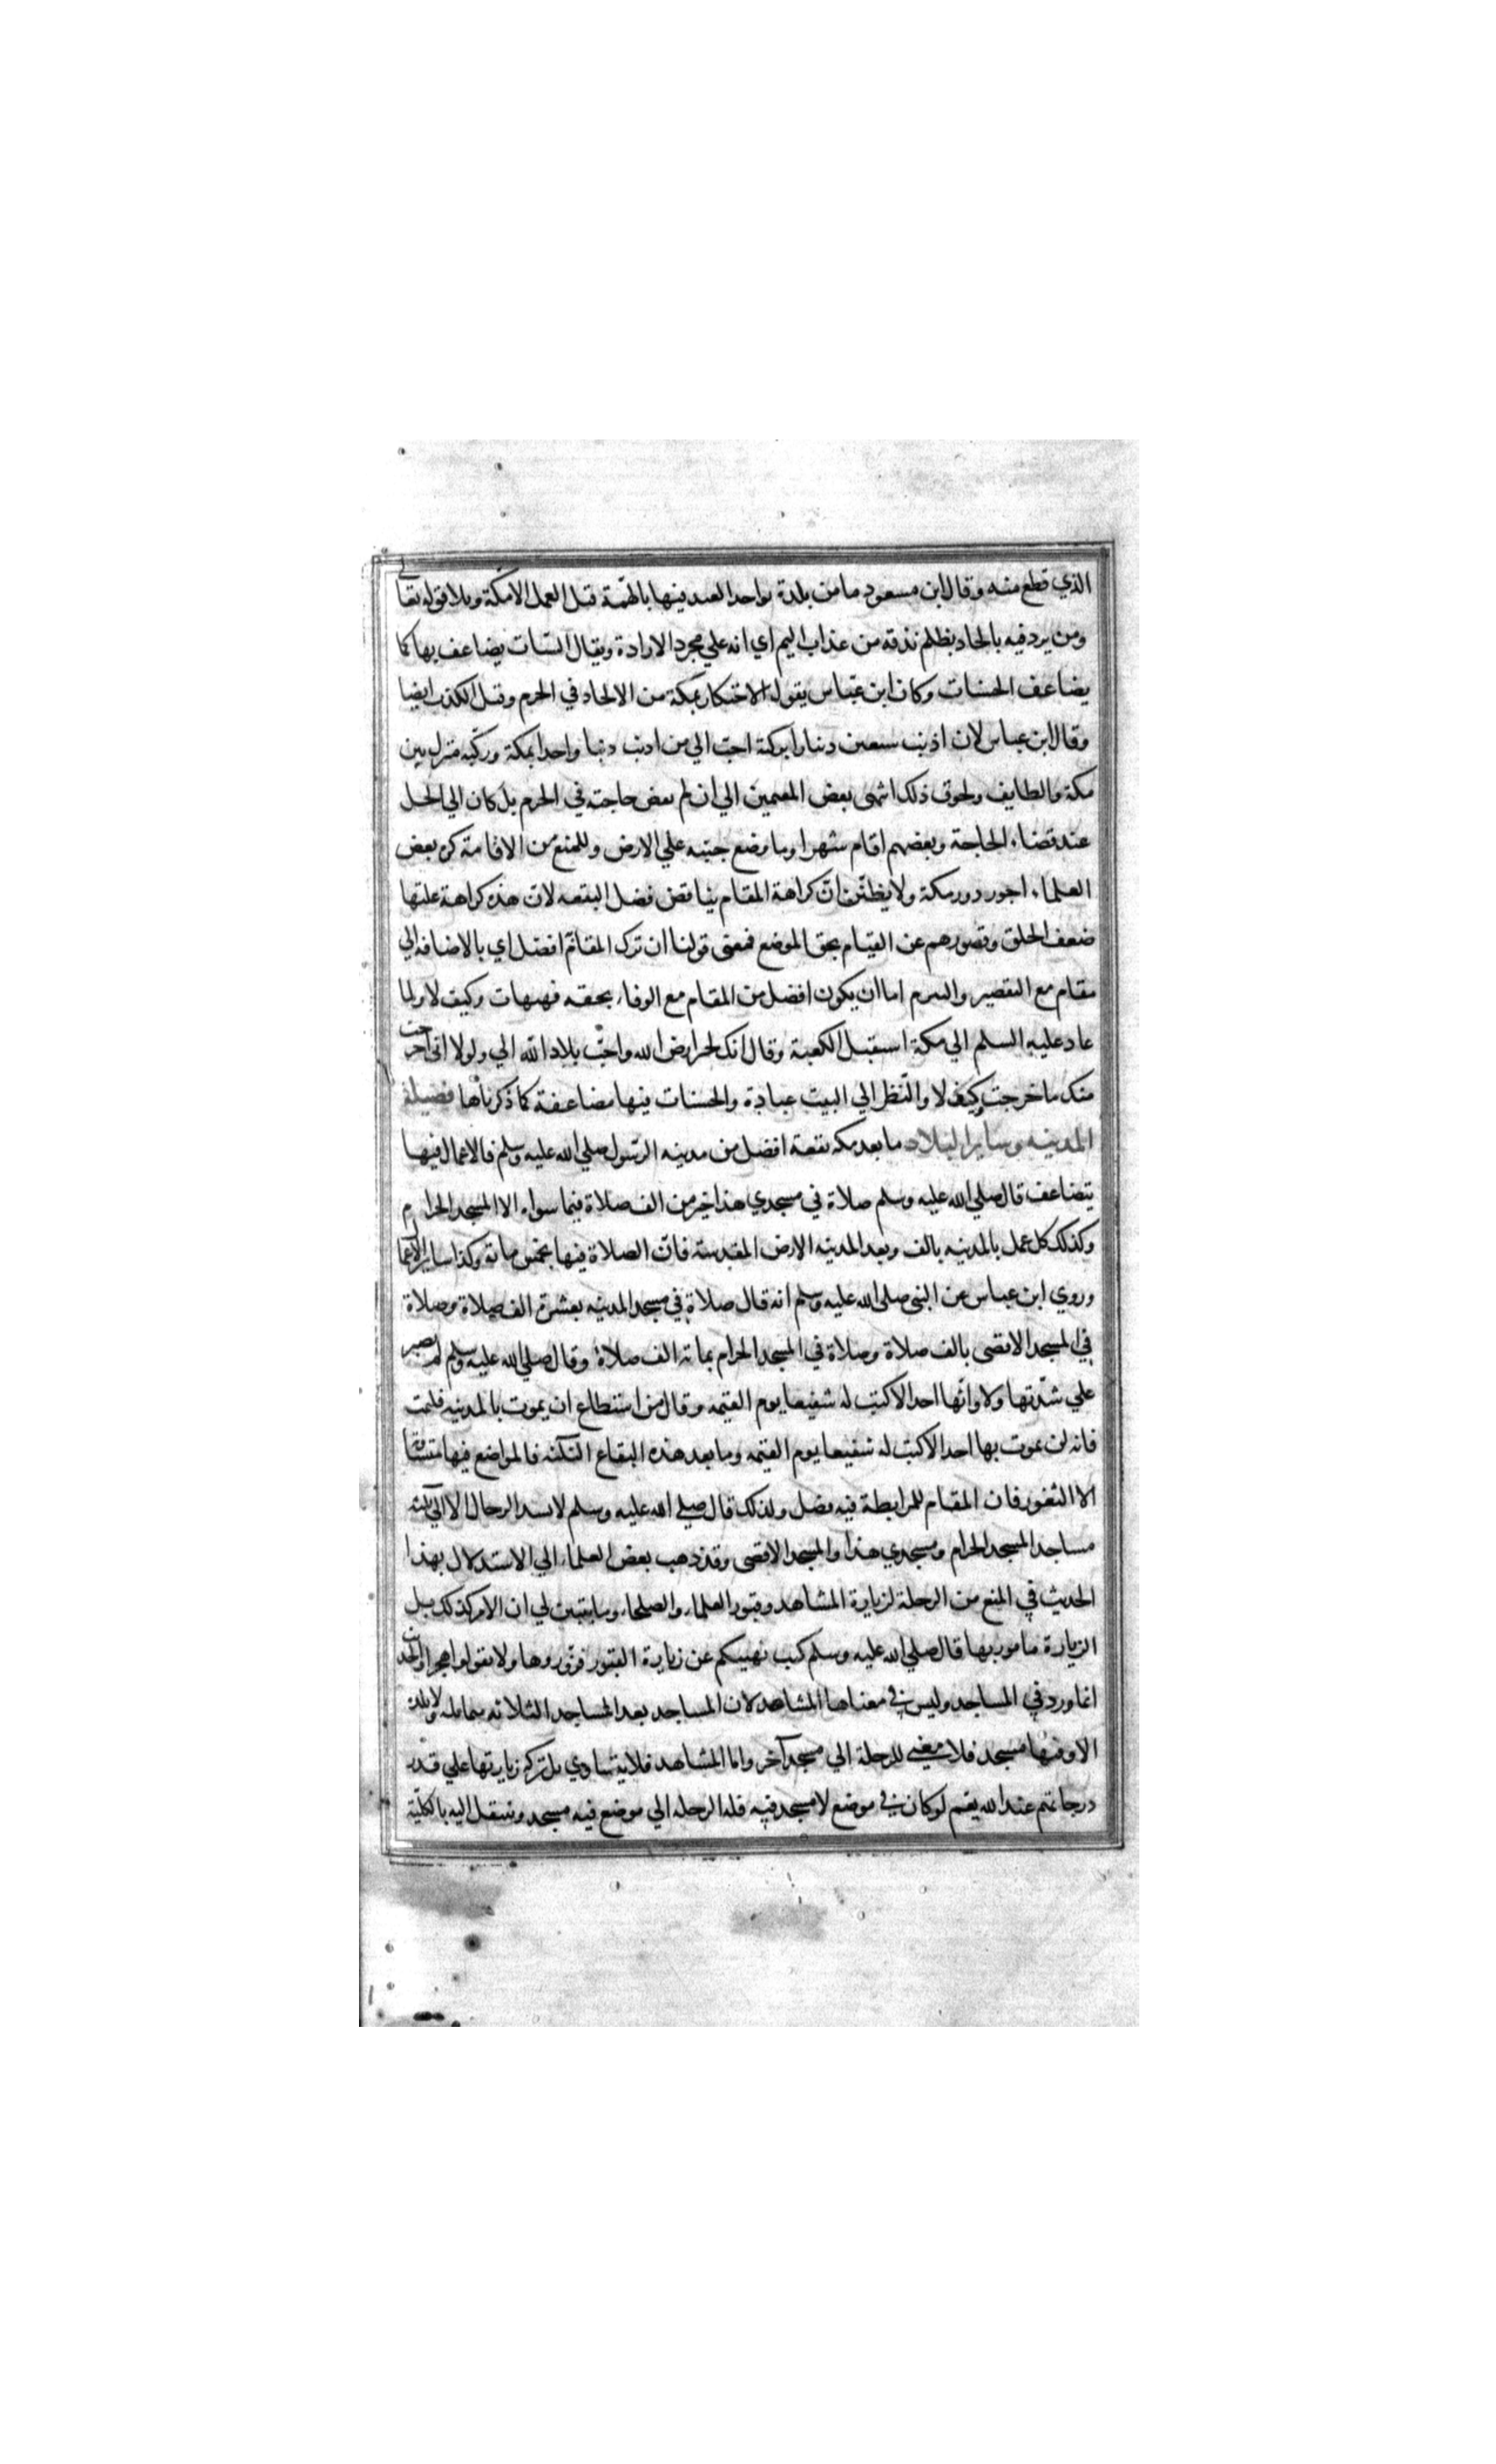 الذي قطع منه وقال ابن مسعود ما من بلدة يواخد العبد فيها بالهمة قبل العمل الا مكة وتلا قوله تعالي
ومن يرد فيه بالحاد بظلم نذقه من عذاب اليم اي انه علي مجرد الارادة ويقال السيات يضاعف بها كما
يضاعف الحسنات وكان ابن عباس يقول الاحتكار بمكة من الالحاد في الحرم وقيل الكذب ايضا
وقال ابن عباس لان اذنب سبعين دنبا بركية احب الي من اذنب دنبا واحدا بمكة وركيه منزل بين
مكة والطايف ولخوف ذلك انتهي بعض المقيمين الي ان لم يقض حاجته في الحرم بل كان الي الحل
عند قضاء الحاجة وبعضهم اقام شهرا وما وضع جنبه علي الارض وللمنع من الاقامة كره بعض
العلماء اجور دور مكة ولا يظنن ان كراهة المقام يناقض فضل البقعه لان هذه كراهة علتها
ضعف الخلق وقصورهم عن القيام بحق الموضع فمعني قولنا ان ترك المقام افضل اي بالاضافه الي
مقام مع التقصير والتبرم اما ان يكون افضل من المقام مع الوفاء بحقه فهيهات وكيف لا ولما
عاد عليه السلم الي مكة استقبل الكعبة وقال انك لخير ارض الله واحب بلاد الله الي ولولا اني اخرجت
منك ما خرجت وكيف لا والنظر الي البيت عبادة والحسنات فيها مضاعفة كما ذكرناها فضيلة
المدينه وساير البلاد ما بعد مكه بقعة افضل من مدينه الرسول صلي الله عليه وسلم فالاعمال فيها
يتضاعف قال صلي الله عليه وسلم صلاة في مسجدي هذا خير من الف صلاة فيما سواه الا المسجد الحرام
وكذلك كل عمل بالمدينه بالف وبعد المدينه الارض المقدسة فان الصلاة فيها بخمس ماته وكذا ساير الاعمال
وروي ابن عباس عن النبي صلي الله عليه وسلم انه قال صلاة في مسجد المدينه بعشرة الف صلاة وصلاة
في المسجد الاقصي بالف صلاة وصلاة في المسجد الحرام بماته الف صلاة وقال صلي الله عليه وسلم لا يصبر
علي شدتها ولاوائها احد الا كنت له شفيعا يوم القيمه وقال من استطاع ان يموت بالمدينه فليمت
فانه لن يموت بها احد الا كنت له شفيعا يوم القيمه وما بعد هذه البقاع الثلثه فالمواضع فيها متساوية
الا الثغور فان المقام للمرابطة فيه فضل ولذلك قال صلي الله عليه وسلم لا تشد الرحال الا الي ثلثة
مساجد المسجد الحرام ومسجدي هذا والمسجد الاقصي وقد ذهب بعض العلماء الي الاستدلال بهذا
الحديث في المنع من الرحلة لزيارة المشاهد وقبور العلماء والصلحاء وما يتبين لي ان الامر كذلك بل
الزيارة مامور بها قال صلي الله عليه وسلم كنت نهيتكم عن زيارة القبور فزوروها ولا تقولوا هجرا والحديث
انما ورد في المساجد وليس في معناها المشاهد لان المساجد بعد المساجد الثلاثه متماثله ولا بلدة
الا وفيها مسجد فلا معني للرحلة الي مسجد آخر واما المشاهد فلا يتساوي بل بركة زيارتها علي قدر
درجاتهم عند الله نعم لو كان في موضع لا مسجد فيه فله الرحله الي موضع فيه مسجد وينتقل اليه بالكلية